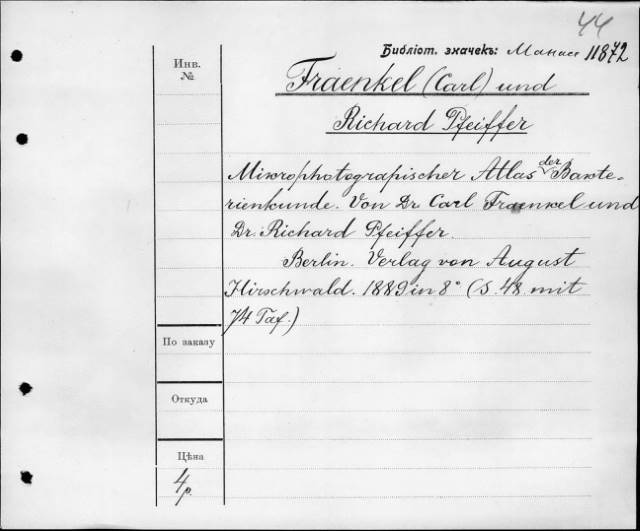 44
Библіот. значекъ: Манасс 11872
Инв.
№
Fraenkel (Carl) und
Richard Pfeiffer
Mikrophotografischer Atlas der Bakte-
rienkunde. Von Dr Carl Fraenkel und
Dr. Richard Pfeiffer.
Berlin. Verlag von August
Hirschwald. 1889 in 8° (S. 48 mit
74 Taf.)
По заказу
Откуда
Цѣна
4р.